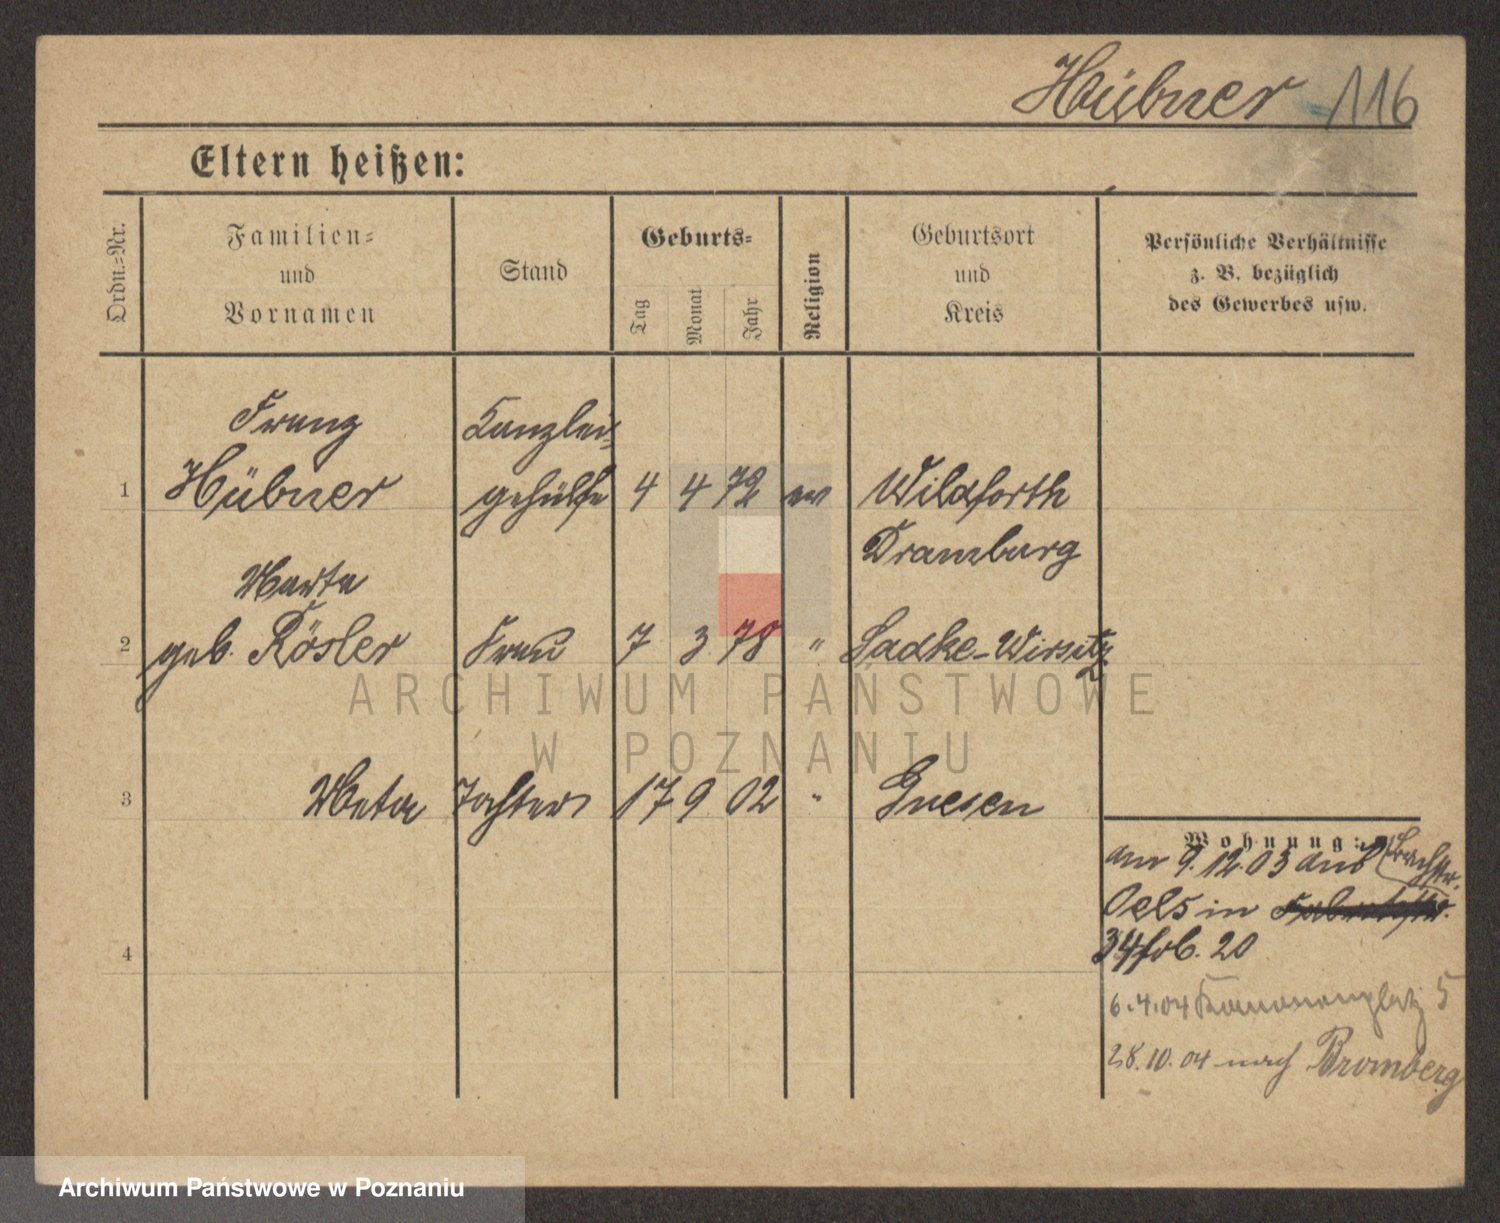 Hübner 116
Eltern heißen:
Ordn.-Nr.
Familien-
und
Vornamen
Stand
Geburts-
Tag
Monat
Jahr
Religion
Geburtsort
und
Kreis
Persönliche Verhältnisse
z. B. bezüglich
des Gewerbes usw.
Franz Kanzlei-
1 Hübner gehülfe 4 4 72 ev Wildforth
Dramburg
Marta
2 geb. Rösler Frau 7 3 78 " Sadke-Wirsitz
3 Meta Tochter 17 9 02 " Gnesen
4
Wohnung:
am 9.12.03 aus
Oels in
34 fol. 20
6.4.04 Kanonenplatz 5
28.10.04 nach Bromberg
ARCHIWUM PAŃSTWOWE
W POZNANIU
Archiwum Państwowe w Poznaniu